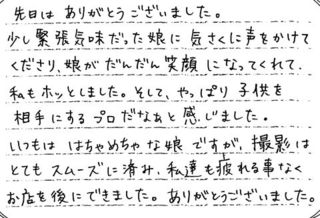 先日は ありがとうございました。
少し緊張気味だった娘に 気さくに声をかけて
くださり、娘がだんだん笑顔に なってくれて、
私もホッとしました。そして、やっぱり 子供を
相手にする プロだなぁと 感じました。
いつもは はちゃめちゃな娘 ですが、撮影は
とてもスムーズに済み、私達も疲れる事なく
お店を後にできました。ありがとうございました。